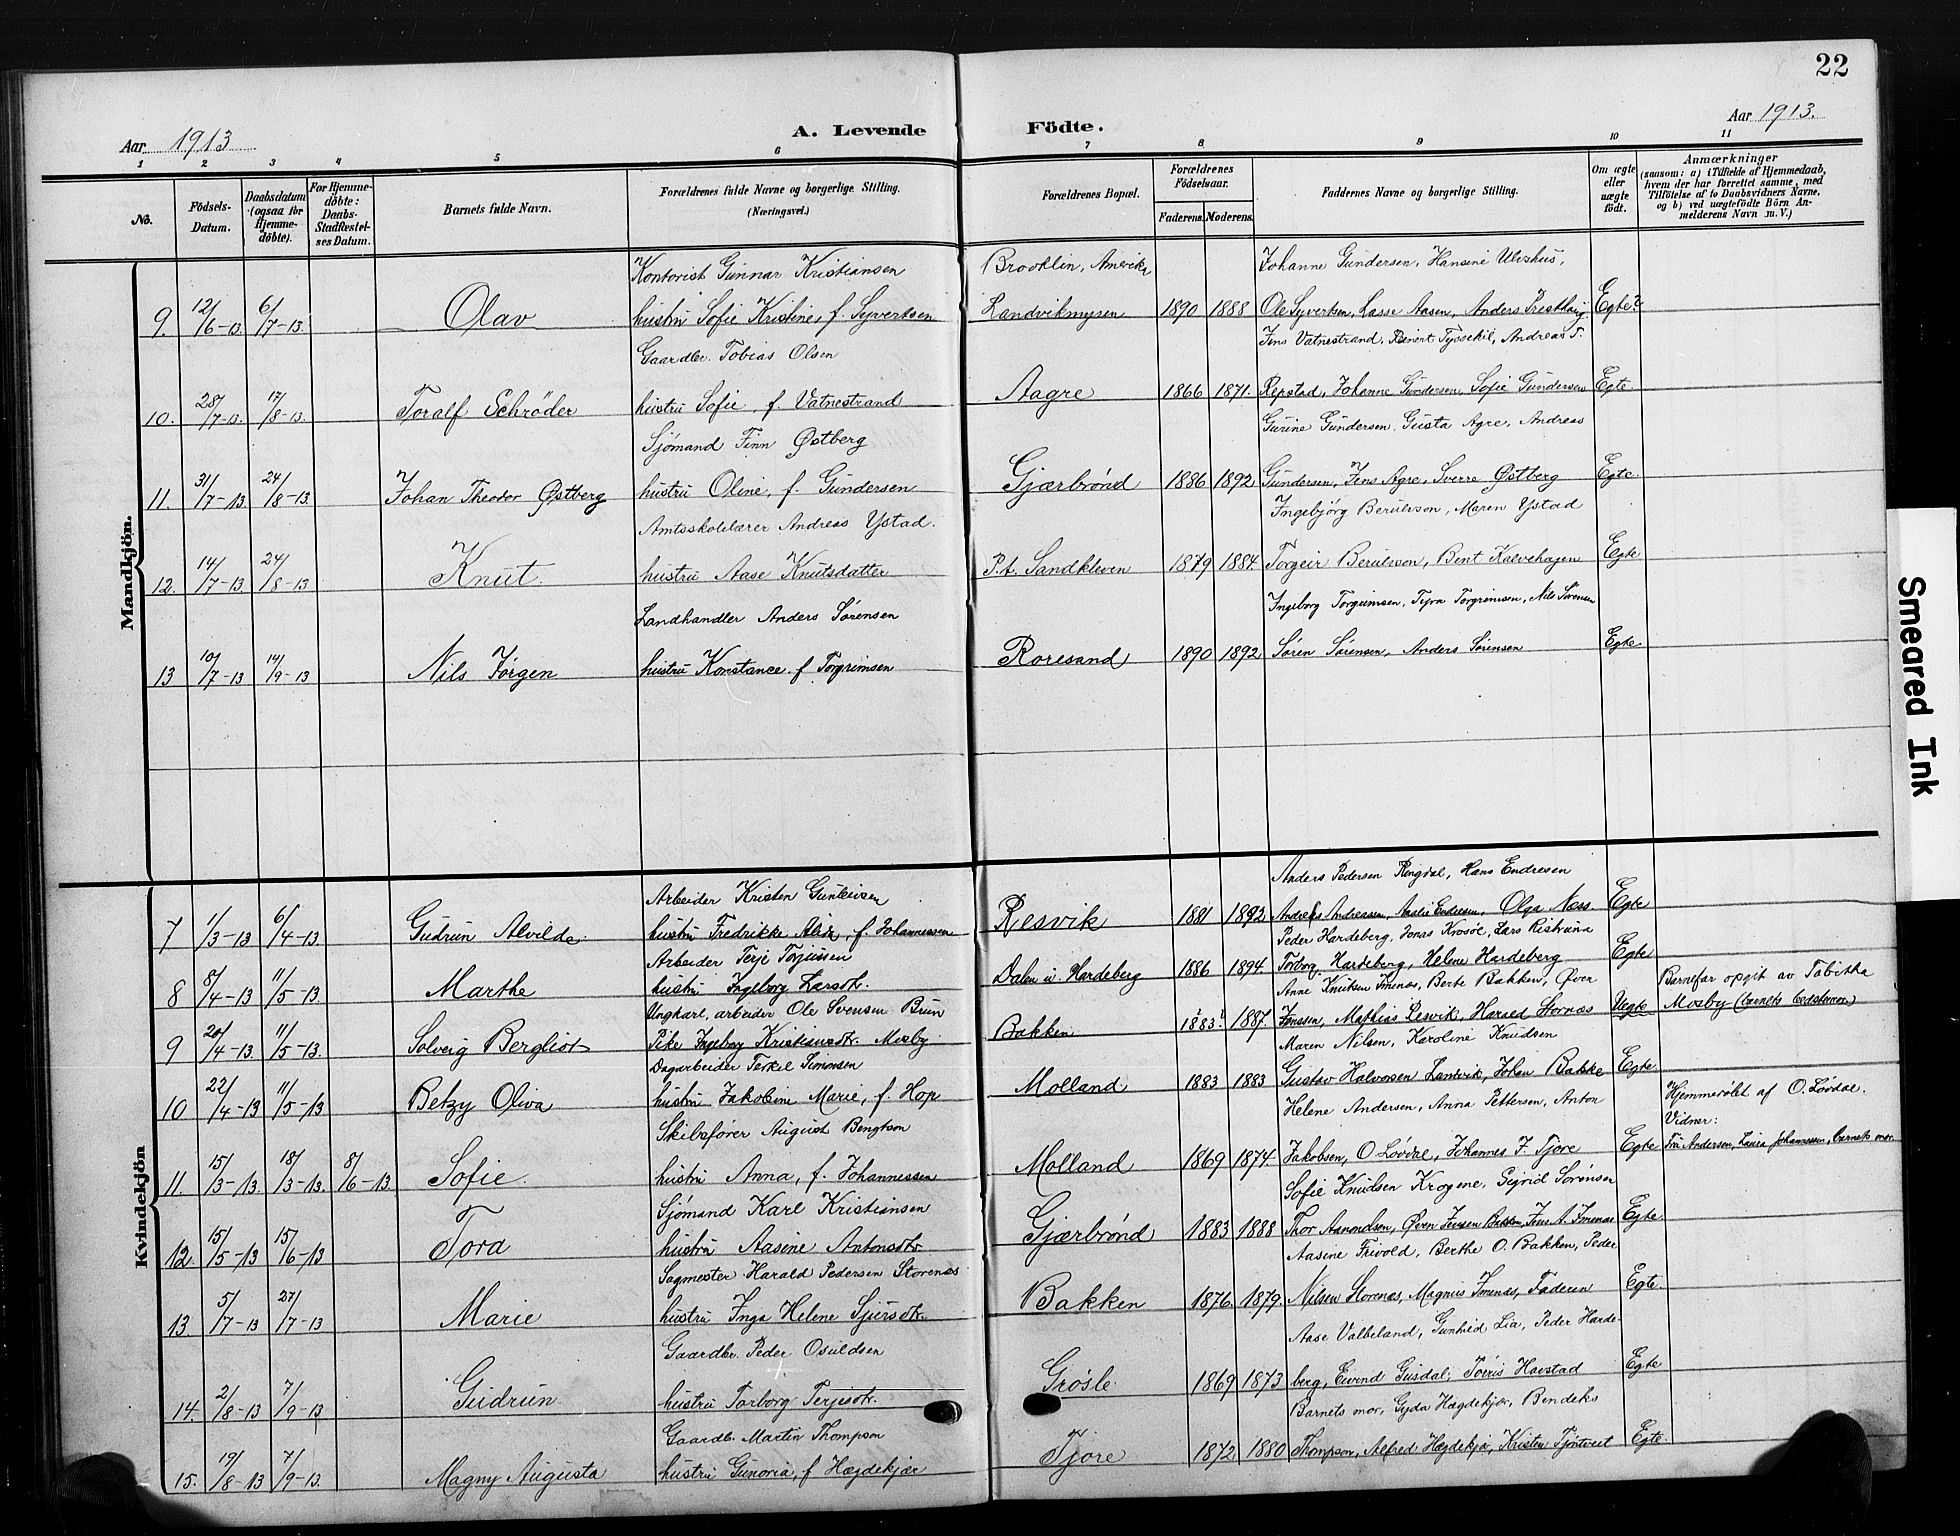 22
Aar 1913
A. Levende Födte.
Aar 1913.
1 2 3 4 5 6 7 8 9 10 11
No.
Födsels-Datum.
Daabsdatum (ogsaa for Hjemme-döbte).
For Hjemme-döbte: Daabs-Stadfæstel-ses Datum.
Barnets fulde Navn.
Forældrenes fulde Navne og borgerlige Stilling. (Næringsvei.)
Forældrenes Bopæl.
Forældrenes Födselsaar.
Faderens. Moderens.
Faddernes Navne og borgerlige Stilling.
Om ægte eller uægte født.
Anmærkninger
(saasom: a) i Tilfælde af Hjemmedaab, hvem der har forrettet samme, med Tilföielse af to Daabsvidners Navne, og b) ved uægtefödte Börn An-melderens Navn m. V.)
Mandkjön.
Kontorist Gunnar Kristiansen Brooklin, Amerika Johanne Gundersen, Hansine
9. 12/6-13 6/7-13. Olav hustru Sofie Kristine, f. Syvertsen Landvikmysen 1890 1888 Ole Syvertsen, Lasse Aasen, Anders Presthaug Egte?
Gaardbr. Tobias Olsen Jens Vatnestrand, Reinert Tyssekil, Andreas T.
10. 28/7-13. 17/8-13. Toralf Schrøder hustru Sofie, f. Vatnestrand Aagre 1866 1871. Repstad, Johanne Gundersen, Sofie Gundersen Egte
Sjømand Finn Østberg Gurine Gundersen, Gusta Agre, Andreas
11. 31/7-13 24/8-13. Johan Theodor Østberg hustru Oline, f. Gundersen Gjærbrønd 1886 1892 Gundersen, Jens Agre, Sverre Østberg Egte
Amtsskolelærer Andreas Ystad. Ingebjörg Berulsson, Maren Ystad
12. 14/7-13 24/8-13 Knut hustru Aase Knutsdatter P.t. Sandkleven 1879 1884. Torgeir Berulsson, Bent Kalvehagen Egte
Landhandler Anders Sørensen Ingeborg Torgrimsen, Tyra Torgrimsen, Nils Sørensen
13 10/7-13 14/9-13 Nils Jørgen hustru Konstance f Torgrimsen Roresand 1890 1892 Søren Sørensen, Anders Sørensen Egte
Kvindekjön
Arbeider Kristen Gunleivsen Anders Pedersen Ringdal, Hans Endresen
7 1/3-13 6/4-13. Gudrun Alvilde hustru Fredrikke Alida, f. Johannessen Resvik 1881 1892 Andreas Andreassen, Endresen, Olga Næss Egte
Arbeider Terje Torjussen Peder Hardeberg, Jonas Krosøe, Lars
8 8/4-13 11/5-13. Marthe hustru Ingeborg Larsdtr. Dalen u. Hardeberg 1886 1894. Torborg Hardeberg, Helene Hardeberg Egte
Ungkarl, arbeider Ole Svensen Brun Anne Knutsen Imenæs, Berte Bakken, Øver Barnefar opgit av Tabitha
9 20/4-13. 11/5-13. Solveig Bergliot Pike Ingeborg Kristiansdtr. Mosby Bakken 1883? 1887. Jenssen, Mathias Resvik, Harald Stornæs Uegte Mosby (barnets bedstemor)
Dagarbeider Terkel Simonsen Maren Nilsen, Karoline Knudsen
10 22/4-13 11/5-13 Betzy Oliva hustru Jakobine Marie, f. Hop Molland 1883 1883 Gustav Halvorsen Landvik, Johan Bakke Egte
Skibsfører August Bengtson Helene Andersen, Anna Pettersen, Anton Hjemmedøbt af O. Løvdal.
Vidner:
11. 15/3-13. 18/3-13. 8/6-13. Sofie. hustru Anna, f. Johannessen Molland 1869 1874. Jakobsen, O. Løvdal, Johannes J. Tjore Egte Fru Andersen, Laura Johannessen, barnets mor
Sjømand Karl Kristiansen Sofie Knudsen Krogene, Sigrid Sørensen
12. 15/5-13 15/6-13 Tora hustru Aasine Antonsdtr. Gjærbrønd 1883 1888 Thor Aanondsen, Øven Jensen Bakken, Jens A. Imenæs Egte
Sagmester Harald Pedersen Storenæs Aasine Frivold, Berthe O. Bakken, Peder
13 5/7-13 27/7-13 Marie hustru Inga Helene Sjursdtr. Bakken 1876. 1879. Nilsen Storenæs, Magnus Imenæs, Faderen Egte.
Gaardbr. Peder Osuldsen Aase Valbeland, Gunhild Lia, Peder Harde-
14. 2/8-13 7/9-13 Gudrun. hustru Torborg Terjesdtr. Grøsle 1869 1873 berg, Eivind Gusdal, Toeris Havstad Egte
Gaardb. Martin Thompson Barnets mor, Gyda Hægdekjær, Bendeks
15. 19/8-13 7/9-13. Magny Augusta hustru Gunoria, f Hægdekjær Tjore 1872. 1880 Thompson, Alfred Hægdekjæ, Kristen Tjøntveit Egte.
Smeared Ink